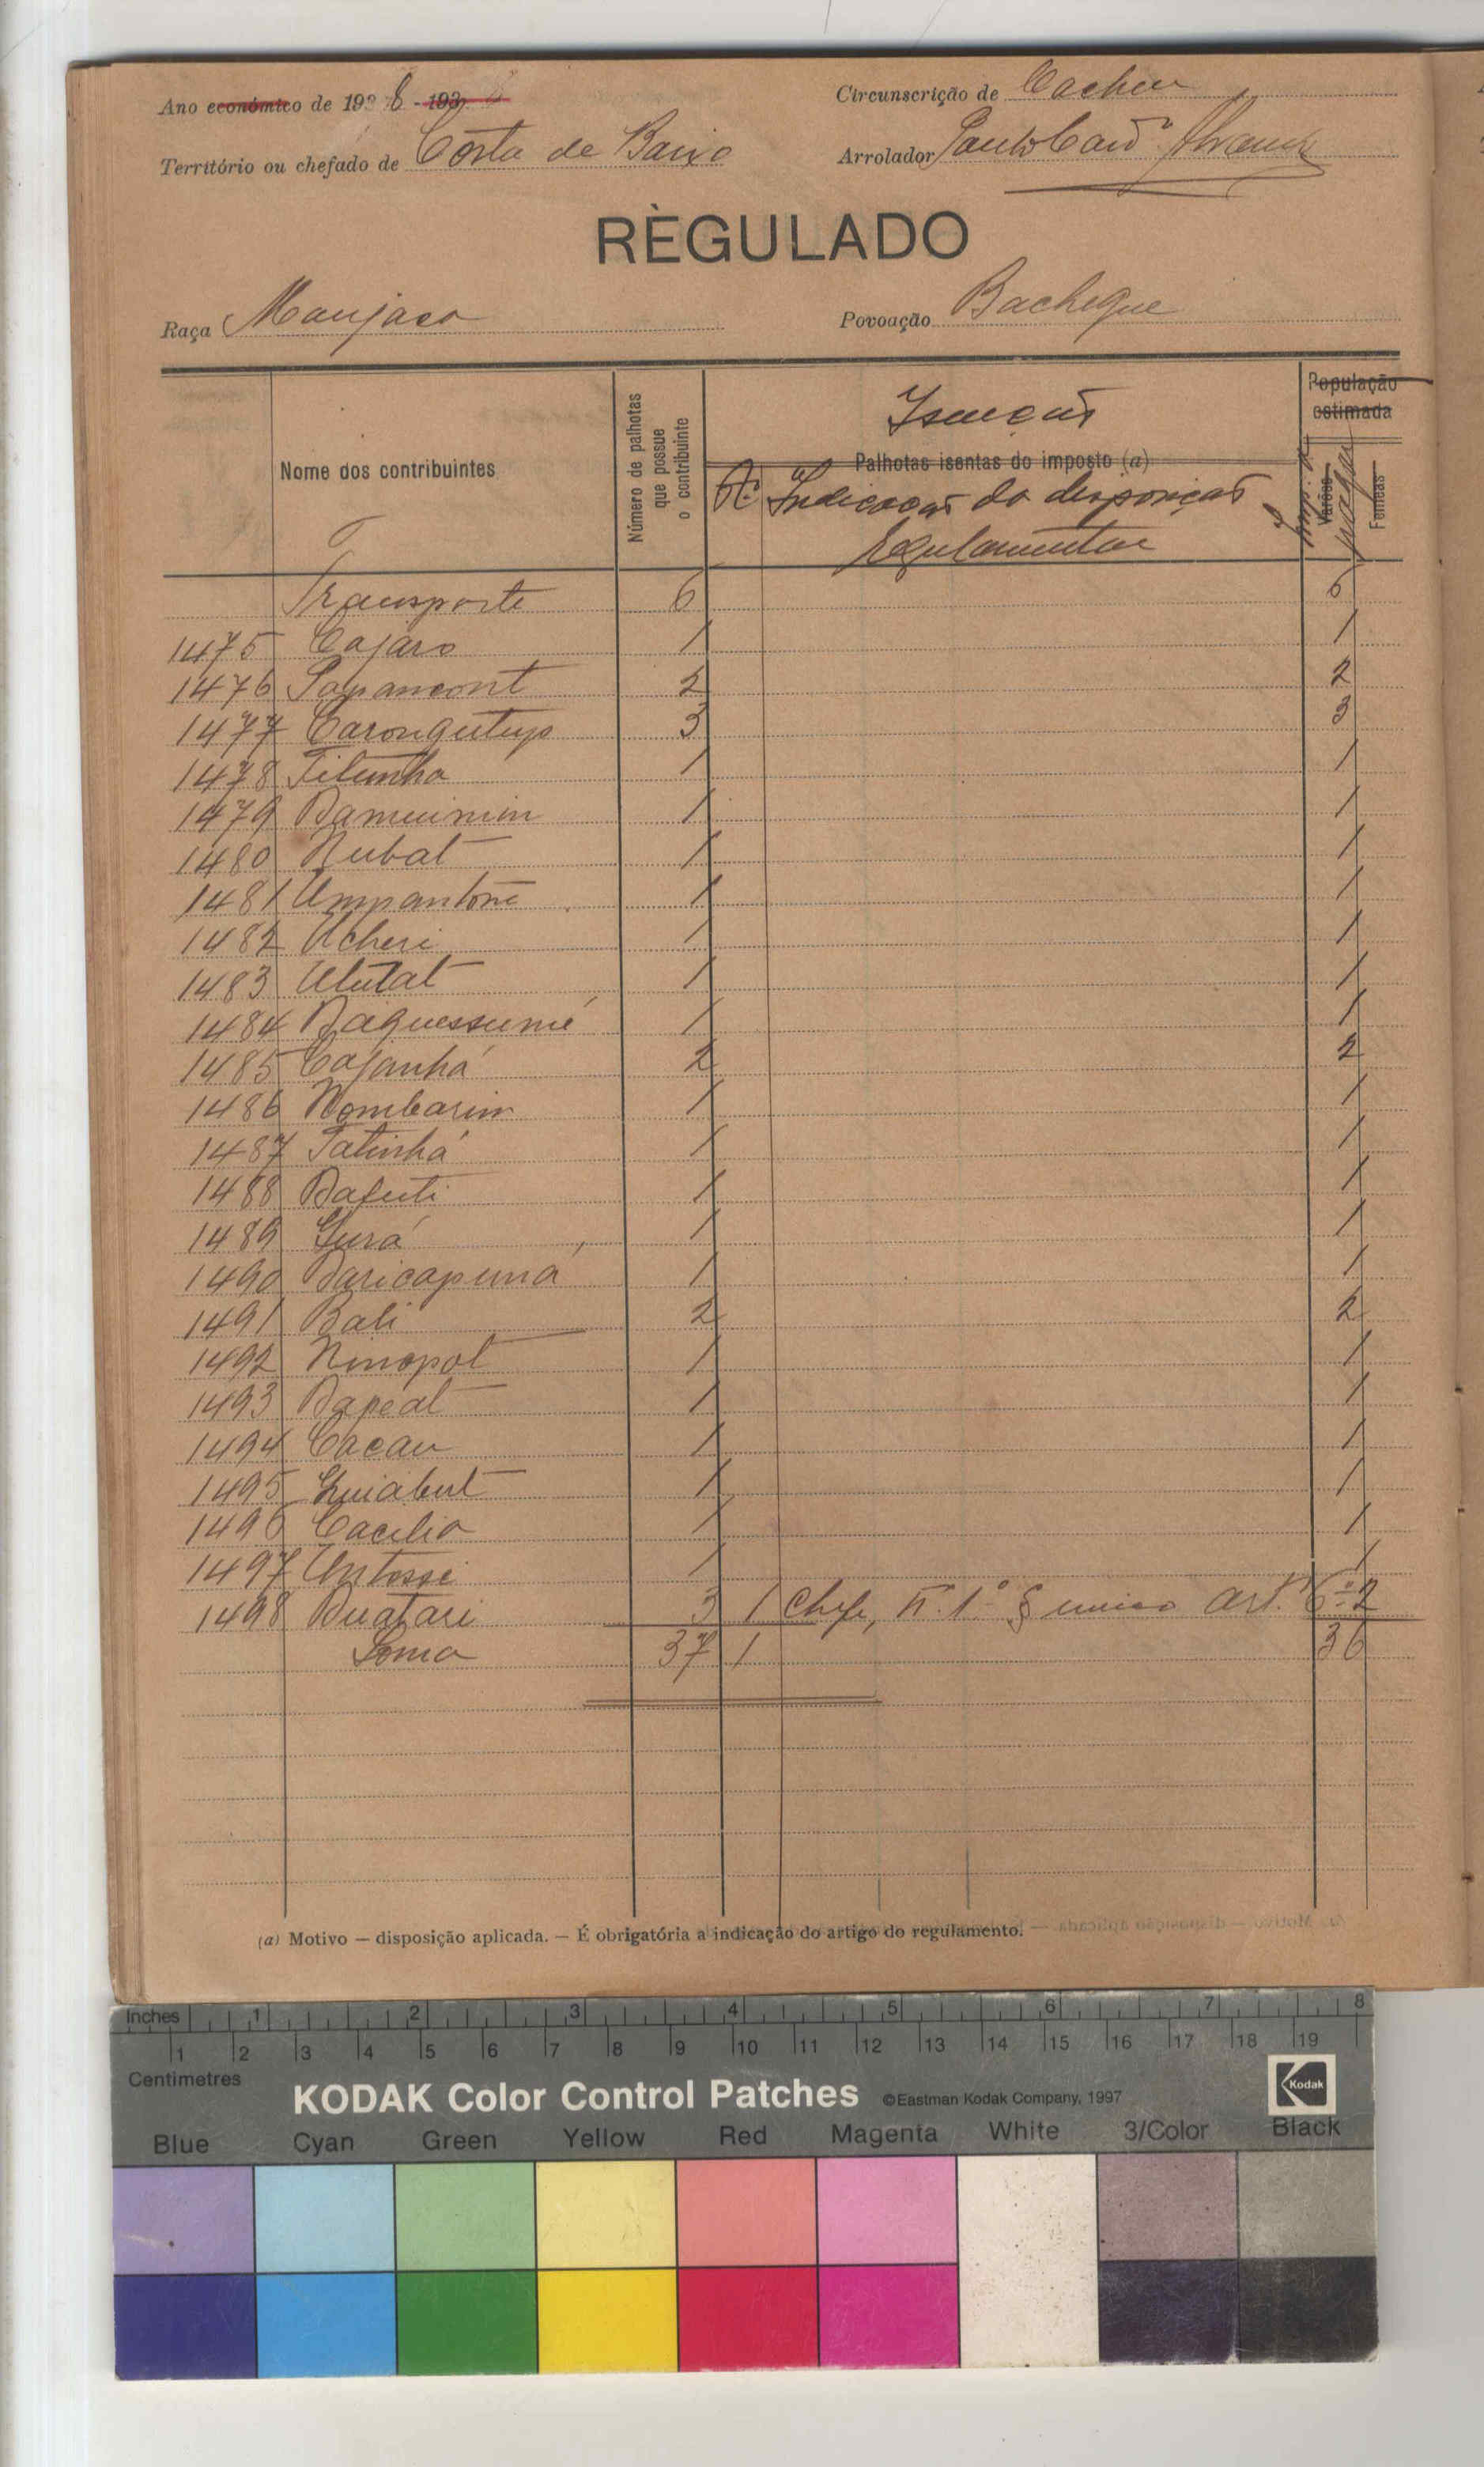 Ano económico de 1938 - 193
Circunscrição de Cacheu
Território ou chefado de Costa de Baixo
Arrolador Paulo
RÈGULADO
Raça Manjaco
Povoação Bacheque
Nome dos contribuintes
Número de palhotas que possue o contribuinte
Isenções
Palhotas isentas do imposto (a)
N.º Indicação da disposição regulamentar
População estimada
Varões
Femeas
Imp. a pagar
Transporte 6 6
1475 Cajaro 1 1
1476 Papancont 2 2
1477 Carongutup 3 3
1478 Titunha 1 1
1479 Bamuinim 1 1
1480 Nubat 1 1
1481 Umpantone 1 1
1482 Ucheri 1 1
1483 Ulutat 1 1
1484 Baquessumé 1 1
1485 Cajanhá 2 2
1486 Nombarim 1 1
1487 Tatinhá 1 1
1488 Bafuti 1 1
1489 Gurá 1 1
1490 Baricapuná 1 1
1491 Bali 2 2
1492 Ninopot 1 1
1493 Bapeat 1 1
1494 Cacau 1 1
1495 Quiabut 1 1
1496 Cacilio 1 1
1497 Untossi 1 1
1498 Buatari 3 1 Chefe, n.º 1.º § unico art.º 6.º 2
Soma 37 1 36
(a) Motivo — disposição aplicada. — É obrigatória a indicação do artigo do regulamento.
Inches 1 2 3 4 5 6 7 8
1 2 3 4 5 6 7 8 9 10 11 12 13 14 15 16 17 18 19
Centimetres
KODAK Color Control Patches ©Eastman Kodak Company, 1997 Kodak
Blue Cyan Green Yellow Red Magenta White 3/Color Black